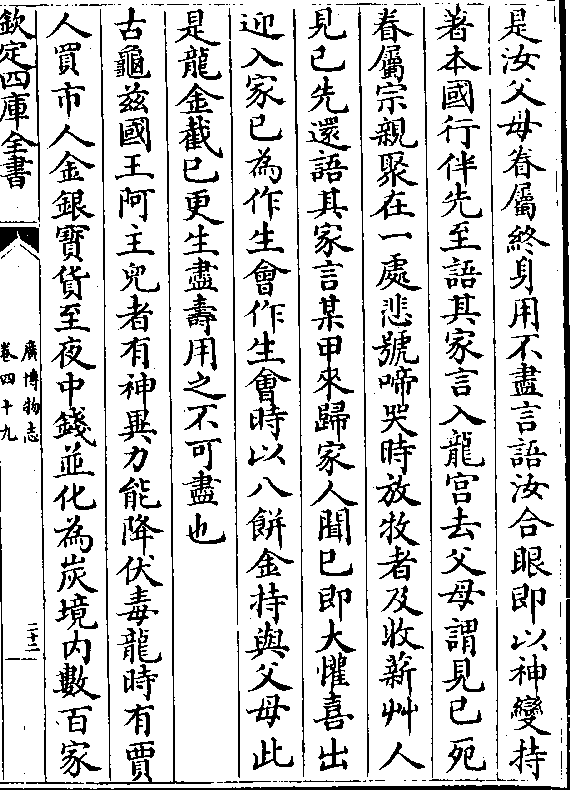 是汝父母眷屬終身用不盡言語汝合眼即以神變持
著本國行伴先至語其家言入龍宫去父母謂見已死
眷屬宗親聚在一處悲號啼哭時放牧者及收薪艸人
見已先還語其家言某甲來歸家人聞已即大懽喜出
迎入家已為作生會作生會時以八餅金持與父母此
是龍金截已更生盡壽用之不可盡也
古龜兹國王阿主兒者有神異力能降伏毒龍時有賈
人買市人金銀寶貨至夜中錢並化為炭境内數百家
欽定四庫全書
廣博物志
卷四十九
二十二